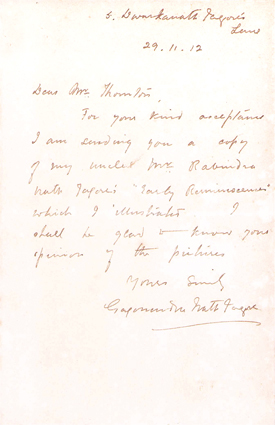 5. Dwarkanath Tagore's
Lane
29.11.12
Dear Mr Thornton,
For your kind acceptance
I am sending you a copy
of my uncle Mr. Rabindra
nath Tagore's "Early Reminiscences"
which I illustrated I
shall be glad to know your
opinion of the pictures
Yours Sincly
Gaganendra Nath Tagore